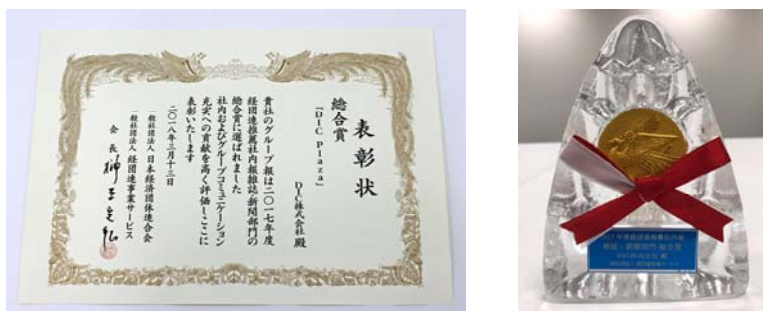 表彰状
総合賞
「DIC Plaza」
DIC株式会社 殿
貴社のグループ報は二〇一七年度
経団連推薦社内報雑誌・新聞部門の
総合賞に選ばれました
社内およびグループコミュニケーション
充実への貢献を高く評価しここに
表彰いたします
二〇一八年三月十三日
一般社団法人 日本経済団体連合会
一般社団法人 経団連事業サービス
会長 榊原定征
2017年度経団連推薦社内報
雑誌・新聞部門 総合賞
DIC株式会社 殿